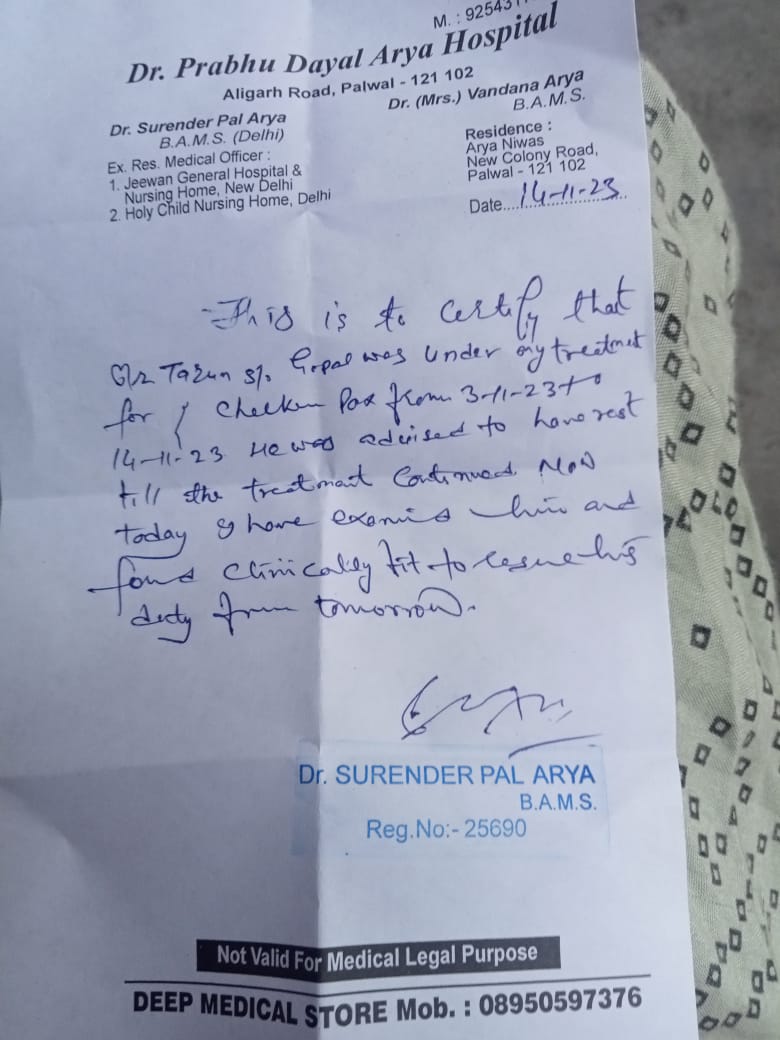 M. : 92543
Dr. Prabhu Dayal Arya Hospital
Aligarh Road, Palwal - 121 102
Dr. Surender Pal Arya
B.A.M.S. (Delhi)
Ex. Res. Medical Officer :
1. Jeewan General Hospital &
Nursing Home, New Delhi
2. Holy Child Nursing Home, Delhi
Dr. (Mrs.) Vandana Arya
B.A.M.S.
Residence :
Arya Niwas
New Colony Road,
Palwal - 121 102
Date....14-11-23
This is to certify that
Mr Tarun s/o Gopal was under my treatment
for Checken Pox from 3-11-23 to
14-11-23 He was advised to have rest
till the treatment Continued. Now
today I have examin him and
found Clinically fit to resume his
duty from tomorrow.
Dr. SURENDER PAL ARYA
B.A.M.S.
Reg.No:- 25690
Not Valid For Medical Legal Purpose
DEEP MEDICAL STORE Mob. : 08950597376